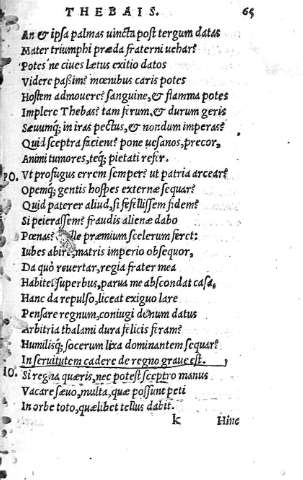 THEBAIS. 65
An & ipsa palmas uincta post tergum datas
Mater triumphi præda fraterni uehar?
Potes'ne ciues lætus exitio datos
Videre paßim? mœnibus caris potes
Hostem admouere? sanguine, & flamma potes
Implere Thebas? tam ferum, & durum geris
Sæuumq; in iras pectus, & nondum imperas?
Quid sceptra facient? pone uesanos, precor,
Animi tumores, teq; pietati refer.
PO. Vt profugus errem semper? ut patria arcear?
Opemq; gentis hospes externæ sequar?
Quid paterer aliud, si fefellissem fidem?
Si peierassem? fraudis alienæ dabo
Pœnas? ille præmium scelerum feret?
Iubes abire, matris imperio obsequor,
Da quò reuertar, regia frater mea
Habitet superbus, parua me abscondat casa,
Hanc da repulso, liceat exiguo lare
Pensare regnum, coniugi donum datus
Arbitria thalami dura felicis feram?
Humilisq; socerum lixa dominantem sequar?
In seruitutem cadere de regno graue est.
IO. Si regna quæris, nec potest sceptro manus
Vacare sæuo, multa, quæ possunt peti
In orbe toto, quælibet tellus dabit.
k Hinc